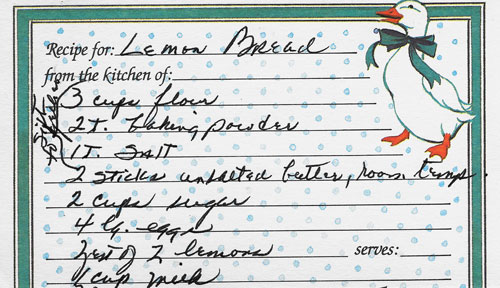 Recipe for: Lemon Bread
from the kitchen of:
Sift together
3 cups flour
2 t. baking powder
1 t. salt
2 sticks unsalted butter, room temp.
2 cups sugar
4 lg. eggs
Zest of 2 lemons
serves:
1 cup milk